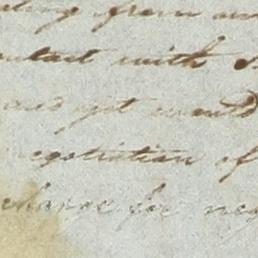 from
with
and yet would
negotiation of
change for neg